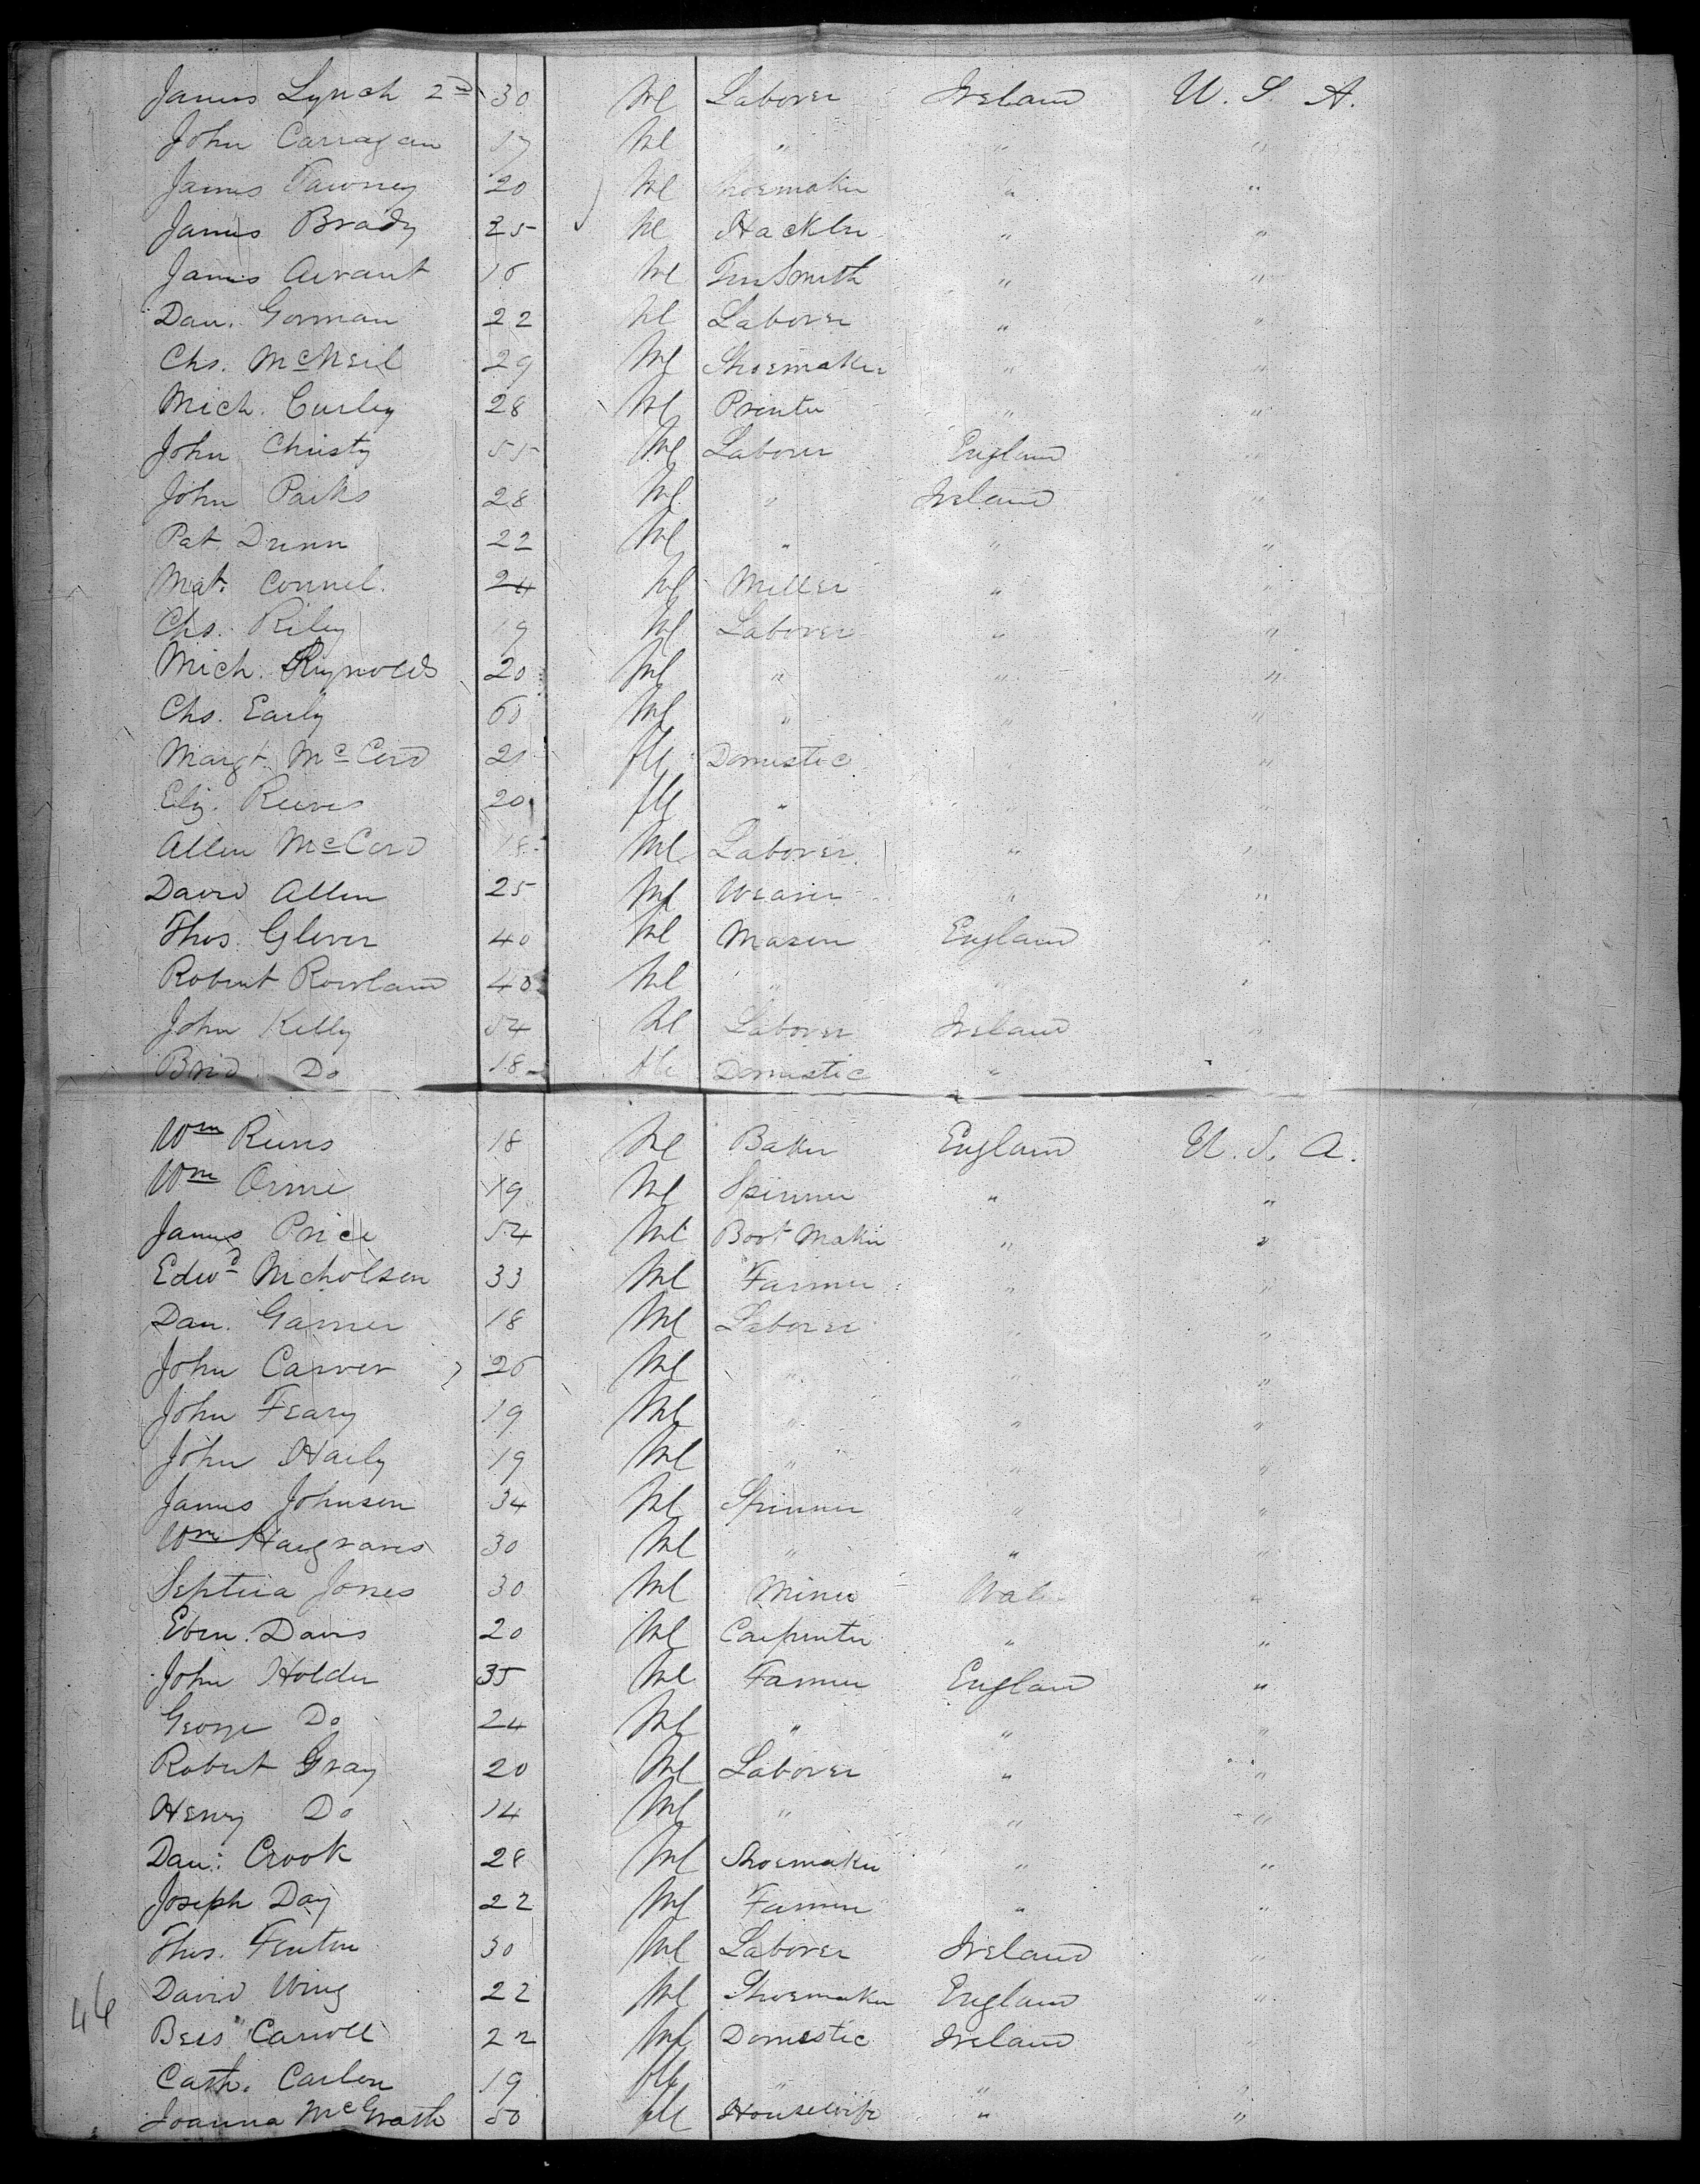 James Lynch 2nd 30 Ml Laborer Ireland U. S. A.
John Carragan 17 Ml " " "
James Tawney 20 Ml Shoemaker " "
James Brady 25 Ml Hackler " "
James 16 Ml TinSmith " "
Dan. Gorman 22 Ml Laborer " "
Chs. McNeil 29 Ml Shoemaker " "
Mich. Curley 28 Ml Printer " "
John Christy 55 Ml Laborer England "
John Parks 28 Ml " Ireland "
Pat. Dunn 22 Ml " " "
Mat. Connel. 24 Ml Miller " "
Chs. Riley 19 Ml Laborer " "
Mich. Reynolds 20 Ml " " "
Chs. Early 60 Ml " " "
Margt. McCord 21 fle Domestic " "
Eliz. Reeves 20 fle " " "
Allen McCord 18 Ml Laborer " "
David Allen 25 Ml Weaver " "
Thos. Glover 40 Ml Mason England "
Robert Rowland 40 Ml " " "
John Kelly 54 Ml Laborer Ireland "
Brid. Do 18 fle Domestic "
Wm Reeves 18 Ml Baker England U. S. A.
Wm Orme 19 Ml Spinner " "
James Price 54 Ml Boot Maker " "
Edwd Nicholson 33 Ml Farmer " "
Dan. Garner 18 Ml Laborer " "
John Carver 26 Ml " " "
John Feary 19 Ml " " "
John Haily 19 Ml " " "
James Johnson 34 Ml Spinner " "
Wm Hargraves 30 Ml " " "
Jones 30 Ml Miner Wales "
Eben. Davis 20 Ml Carpenter " "
John Holder 35 Ml Farmer England "
George Do 24 Ml " " "
Robert Gray 20 Ml Laborer " "
Henry Do 14 Ml " " "
Dan: Crook 28 Ml Shoemaker " "
Joseph Day 22 Ml Farmer " "
Thos. Fenton 30 Ml Laborer Ireland "
David Wing 22 Ml Shoemaker England "
46
Bess Carroll 22 Ml Domestic Ireland "
Cath. Carlon 19 fle " " "
Joanna McGrath 50 fle Housewife " "